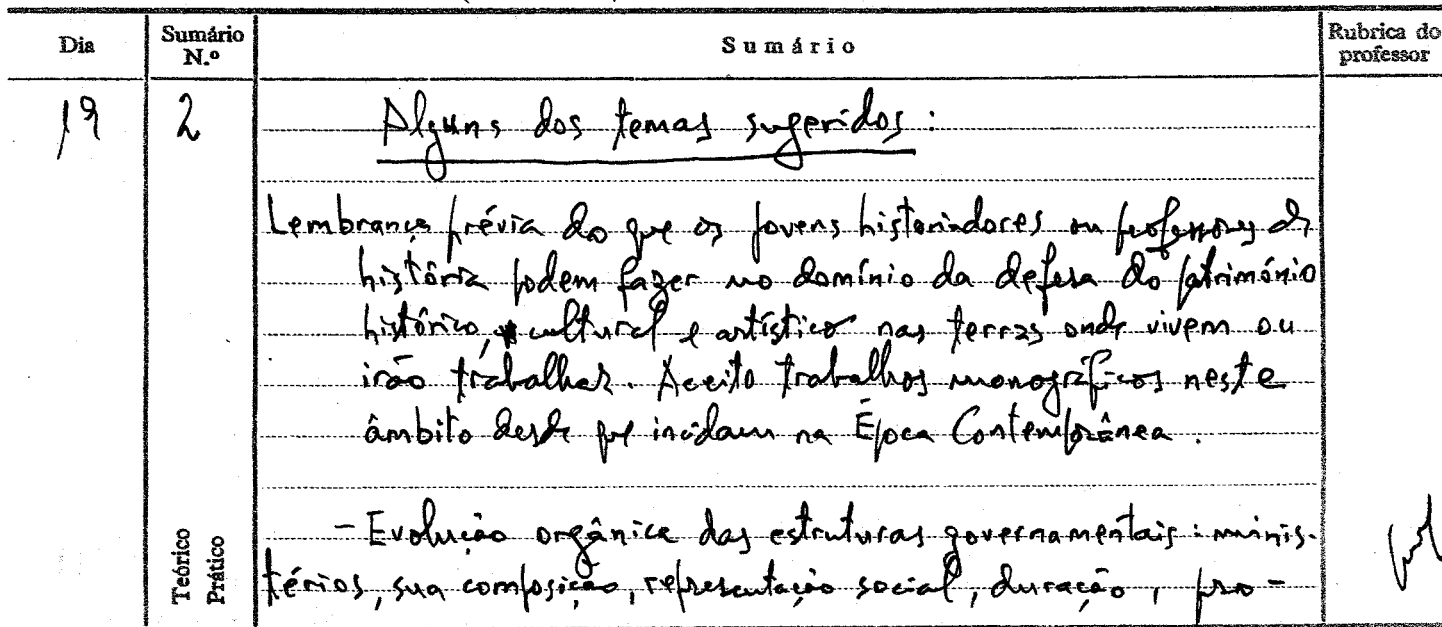 Dia
Sumário N.º
Sumário
Rubrica do professor
19
2
Alguns dos temas sugeridos:
Lembrança prévia do que os jovens historiadores ou professores de
história podem fazer no domínio da defesa do património
histórico, cultural e artístico nas terras onde vivem ou
irão trabalhar. Aceito trabalhos monográficos neste
âmbito desde que incidam na Época Contemporânea.
- Evolução orgânica das estruturas governamentais: minis-
térios, sua composição, representação social, duração, pro-
Teórico
Prático